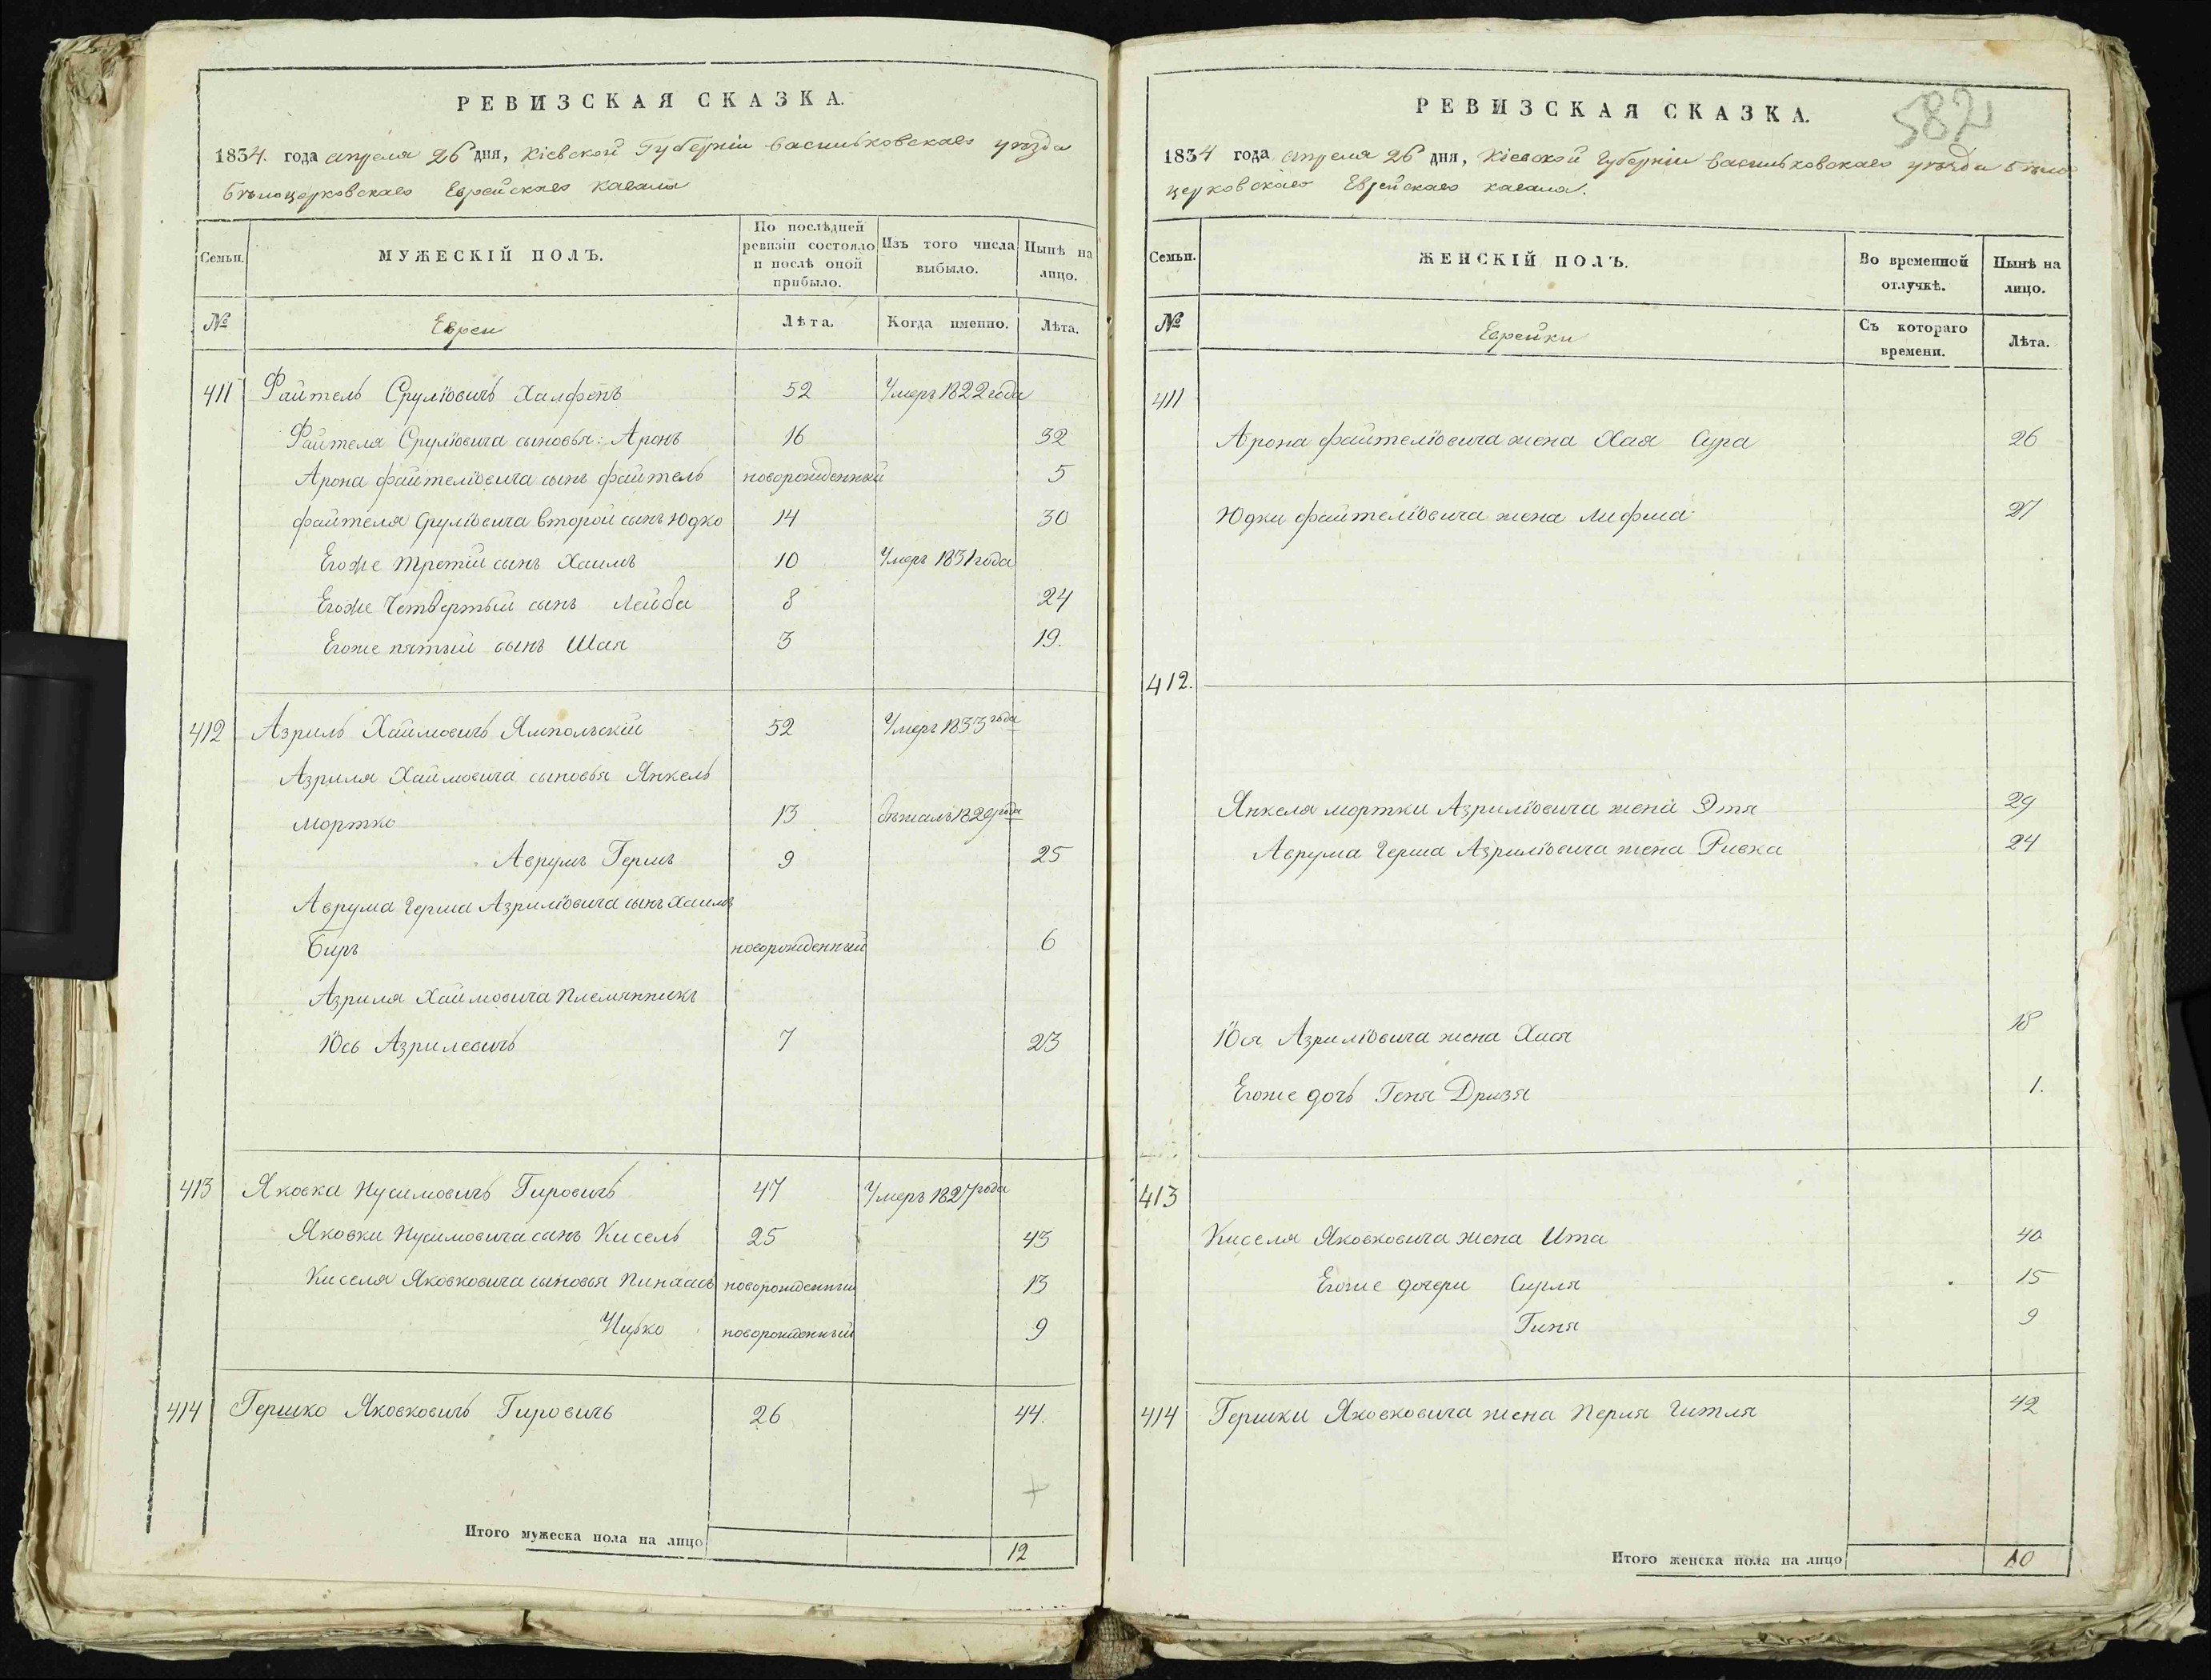 РЕВИЗСКАЯ СКАЗКА.
1834. года апреля 26 дня, Кіевской Губерніи Васильковскаго уѣзда
Бѣлоцерковскаго Еврейскаго Кагала
Семьи. МУЖЕСКІЙ ПОЛЪ. По послѣдней ревизіи состояло и послѣ оной прибыло. Изъ того числа выбыло. Нынѣ на лицо.
№ Евреи Лѣта. Когда именно. Лѣта.
411 Файтель Сруліовичъ Халфонъ 52 Умеръ 1822 года
Файтеля Сруліовича сыновья: Аронъ 16 32
Арона файтеліовича сынъ файтель новорожденный 5
файтеля Сруліовича второй сынъ Юдко 14 30
Егоже третій сынъ Хаимъ 10 Умеръ 1831 года
Егоже Четвертый сынъ Лейба 8 24
Егоже пятый сынъ Шая 3 19.
412 Азриль Хаймовичъ Ямпольскій 52 Умеръ 1833 года
Азриля Хаймовича сыновья Янкель
Мортко 13 бѣжалъ 1829 года
Аврумъ Гершъ 9 25
Аврума Герша Азриліовича сынъ Хаимъ
Биръ новорожденный 6
Азриля Хаймовича Племянникъ
Іось Азрилевичъ 7 23
413 Яковка Нусимовичъ Гировичъ 47 Умеръ 1827 года
Яковки Нусимовича сынъ Кисель 25 43
Киселя Яковковича сыновья Пинхасъ новорожденный 13
Ицко новорожденный 9
414 Гершко Яковковичъ Гировичъ 26 44.
Итого мужеска пола на лицо 12
582
РЕВИЗСКАЯ СКАЗКА.
1834 года апреля 26 дня, Кіевской Губерніи Васильковскаго уѣзда Бѣло
церковскаго Еврейскаго кагала.
Семьи. ЖЕНСКІЙ ПОЛЪ. Во временной отлучкѣ. Нынѣ на лицо.
№ Еврейки Съ котораго времени. Лѣта.
411
Арона файтеліовича жена Хая Сура 26
Юдки файтеліовича жена Лифша 27
412.
Янкеля мортки Азриліовича жена Этя 29
Аврума Герша Азриліовича жена Ривка 24
Іося Азриліовича жена Хася 18
Егоже дочь Геня Дризя 1.
413
Киселя Яковковича жена Ита 40
Егоже дочери Сурля 15
Гиня 9
414 Гершки Яковковича жена Перля Гитля 42
Итого женска пола на лицо 10